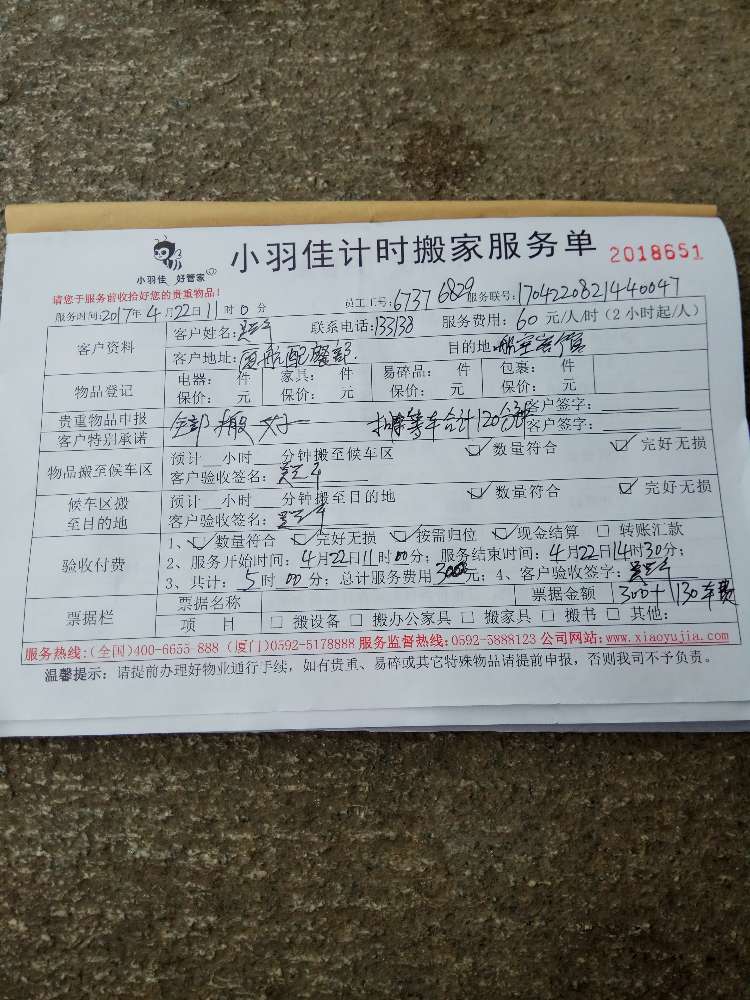 小羽佳 好管家
小羽佳计时搬家服务单 2018651
请您于服务前收拾好您的贵重物品！
服务时间：2017年4月22日11时0分 员工工号：6737 6829 服务联号：17042208214440047
客户资料 客户姓名： 联系电话：133138 服务费用：60元/人/时（2小时起/人）
客户地址：厦航配餐部. 目的地：航空宾馆
物品登记 电器： 件 家具： 件 易碎品： 件 包裹： 件
保价： 元 保价： 元 保价： 元 保价： 元
贵重物品申报 全部搬好 扣除等车合计120分钟 客户签字：
客户特别承诺 客户签字：
物品搬至候车区 预计 小时 分钟搬至候车区 ☑数量符合 ☑完好无损
客户验收签名：
候车区搬至目的地 预计 小时 分钟搬至目的地 ☑数量符合 ☑完好无损
客户验收签名：
验收付费 1、☑数量符合 ☑完好无损 ☑按需归位 ☑现金结算 □ 转账汇款
2、服务开始时间：4月22日11时00分；服务结束时间：4月22日14时30分；
3、共计：5时00分；总计服务费用300元；4、客户验收签字：
票据栏 票据名称 票据金额 300+130车费
项 目 □ 搬设备 □ 搬办公家具 □ 搬家具 □ 搬书 □ 其他：
服务热线：(全国)400-6655-888 (厦门)0592-5178888 服务监督热线：0592-5888123 公司网站：www.xiaoyujia.com
温馨提示：请提前办理好物业通行手续，如有贵重、易碎或其它特殊物品请提前申报，否则我司不予负责。